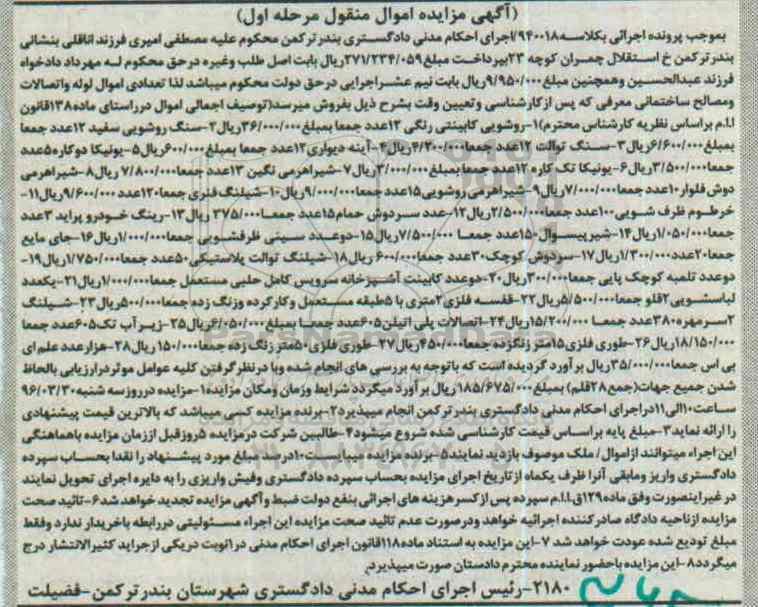 (آگهی مزایده اموال منقول مرحله اول)
بموجب پرونده اجرائی بکلاسه ۹۴۰۰۱۸/اجرای احکام مدنی دادگستری بندرترکمن محکوم علیه مصطفی امیری فرزند اناقلی بنشانی
بندرترکمن خ استقلال چمران کوچه ۲۳بپرداخت مبلغ ۲۷۱/۲۳۴/۰۵۹ریال بابت اصل طلب وغیره درحق محکوم له مهرداد دادخواه
فرزند عبدالحسین وهمچنین مبلغ ۹/۹۵۰/۰۰۰ریال بابت نیم عشراجرایی درحق دولت محکوم میباشد لذا تعدادی اموال لوله واتصالات
ومصالح ساختمانی معرفی که پس ازکارشناسی وتعیین وقت بشرح ذیل بفروش میرسد(توصیف اجمالی اموال درراستای ماده۱۳۸قانون
ا.ا.م براساس نظریه کارشناس محترم)۱-روشویی کابینتی رنگی ۱۲عدد جمعا بمبلغ ۳۶/۰۰۰/۰۰۰ریال۲-سنگ روشویی سفید ۱۲عدد جمعا
بمبلغ۶/۶۰۰/۰۰۰ریال۳-سنگ توالت ۱۲عدد جمعا۴/۲۰۰/۰۰۰ریال۴-آینه دیواری۱۲عدد جمعا بمبلغ ۶۰۰/۰۰۰ریال۵-یونیکا دوکاره۵عدد
جمعا۳/۵۰۰/۰۰۰ریال۶-یونیکا تک کاره ۱۲عدد جمعا بمبلغ۳/۰۰۰/۰۰۰ریال۷-شیراهرمی نگین ۱۳عدد جمعا۷/۸۰۰/۰۰۰ریال۸-شیراهرمی
دوش فلوار۱۰عدد جمعا۷/۰۰۰/۰۰۰ریال۹-شیراهرمی روشویی۱۵عدد جمعا۹/۰۰۰/۰۰۰ریال۱۰-شیلنگ فنری جمعا۱۲۰عدد ۹/۶۰۰/۰۰۰ریال۱۱-
خرطوم ظرف شویی۱۰۰عدد جمعا۲/۵۰۰/۰۰۰ریال۱۲-عدد سردوش حمام۱۵عدد جمعا۳۷۵/۰۰۰ ریال۱۳-رینگ خودرو پراید ۳عدد
جمعا۱/۰۵۰/۰۰۰ریال۱۴-شیرپیسوال۱۵۰عدد جمعا ۷/۵۰۰/۰۰۰ریال۱۵-دوعدد سینی ظرفشویی جمعا۱/۰۰۰/۰۰۰ریال۱۶-جای مایع
جمعا۲۰عدد۱/۳۰۰/۰۰۰ریال۱۷-سردوش کوچک۳۰عدد جمعا۶۰۰/۰۰۰ ریال۱۸-شیلنگ توالت پلاستیکی۵۰عدد جمعا۱/۷۵۰/۰۰۰ریال۱۹-
دوعدد تلمبه کوچک پایی جمعا۳۰۰/۰۰۰ریال۲۰-دوعدد کابینت آشپزخانه سرویس کامل حلبی مستعمل جمعا۱/۰۰۰/۰۰۰ریال۲۱-یکعدد
لباسشویی۲قلو جمعا۵/۵۰۰/۰۰۰ریال۲۲-قفسه فلزی۲متری با ۵طبقه مستعمل وکارکرده وزنگ زده جمعا۵۰۰/۰۰۰ریال۲۳-شیلنگ
۲سرمهره۳۸۰عدد جمعا ۱۵/۲۰۰/۰۰۰ریال۲۴-اتصالات پلی اتیلن۶۰۵عدد جمعا بمبلغ۶/۰۵۰/۰۰۰ریال۲۵-زیرآب تک۶۰۵عدد جمعا
۱۸/۱۵۰/۰۰۰ریال۲۶-طوری فلزی۱۵متر زنگزده جمعا۴۵۰/۰۰۰ریال۲۷-طوری فلزی۵۰متر زنگ زده جمعا۱۵۰/۰۰۰ریال۲۸-هزارعدد علم ای
بی اس جمعا۳۵/۰۰۰/۰۰۰ریال برآورد گردیده است که باتوجه به بررسی های انجام شده وبا درنظرگرفتن کلیه عوامل موثردرارزیابی بالحاظ
شدن جمیع جهات(جمع۲۸قلم) بمبلغ۱۸۵/۶۷۵/۰۰۰ریال برآورد میگردد شرایط وزمان ومکان مزایده۱-مزایده درروزسه شنبه۹۶/۰۳/۳۰
ساعت۱۰الی۱۱دراجرای احکام مدنی دادگستری بندرترکمن انجام میپذیرد۲-برنده مزایده کسی میباشد که بالاترین قیمت پیشنهادی
را ارائه نماید۳-مبلغ پایه براساس قیمت کارشناسی شده شروع میشود۴-طالبین شرکت درمزایده ۵روزقبل اززمان مزایده باهماهنگی
این اجراء میتوانند ازاموال/ملک موصوف بازدید نمایند۵-برنده مزایده میبایست۱۰درصد مبلغ مورد پیشنهاد را نقدا بحساب سپرده
دادگستری واریز ومابقی آنرا ظرف یکماه ازتاریخ اجرای مزایده بحساب سپرده دادگستری وفیش واریزی را به دایره اجرای تحویل نمایند
در غیراینصورت وفق ماده۱۲۹ق.ا.ا.م سپرده پس ازکسرهزینه های اجرائی بنفع دولت ضبط وآگهی مزایده تجدید خواهد شد۶-تائید صحت
مزایده ازناحیه دادگاه صادرکننده اجرائیه خواهد ودرصورت عدم تائید صحت مزایده این اجراء مسئولیتی دررابطه باخریدار ندارد وفقط
مبلغ تودیع شده عودت خواهد شد ۷-این مزایده به استناد ماده۱۱۸قانون اجرای احکام مدنی در۱نوبت دریکی ازجراید کثیرالانتشار درج
میگردد۸-این مزایده باحضور نماینده محترم دادستان صورت میپذیرد.
۲۱۸۰-رئیس اجرای احکام مدنی دادگستری شهرستان بندرترکمن-فضیلت